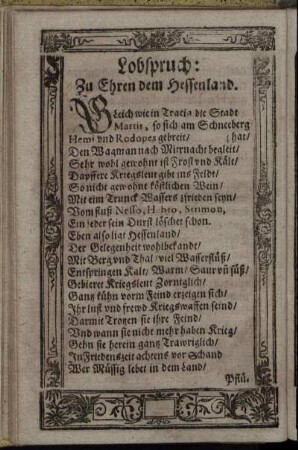 Lobspruch:
Zu Ehren dem Hessenland.
GLeich wie in Tracia die Stadt
Martis, so sich am Schneeberg
Hemi vnd Rodopes gebreit/ (hat/
Den Wagman nach Mitnacht begleit/
Sehr wohl gewohnt ist Frost vnd Kält/
Dapffere Kriegsleut gibt ins Feldt/
So nicht gewohne köstlichen Wein/
Mit eim Trunck Wassers zfrieden seyn/
Vom fluß Nesso, Hebro, Strimon,
Ein jeder sein Durst löschet schon.
Eben also ligt Hessenland/
Der Gelegenheit wohlbekandt/
Mit Berg vnd Thal/ viel Wasserflüß/
Entspringen Kalt/ Warm/ Saur vñ süß/
Gebieret Kriegsleut Zorniglich/
Gantz kühn vorm Feind erzeigen sich/
Ihr lust vnd frewd Kriegswaffen seind/
Darmit Trotzen sie ihre Feind/
Vnd wann sie nicht mehr haben Krieg/
Gehn sie herein gantz Trawriglich/
In Friedenszeit achtens vor Schand
Wer Müssig lebet in dem Land/
Pflü.